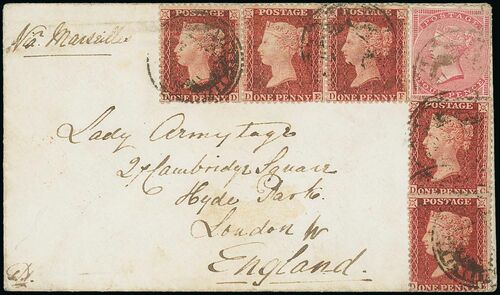 Via Marseilles
POSTAGE
POSTAGE
POSTAGE
POSTAGE
D ONE PENNY D
D ONE PENNY E
D ONE PENNY F
PENCE
Lady Armytage
27 Cambridge Square
Hyde Park
London W
England.
POSTAGE
D ONE PENNY
POSTAGE
ONE PENNY